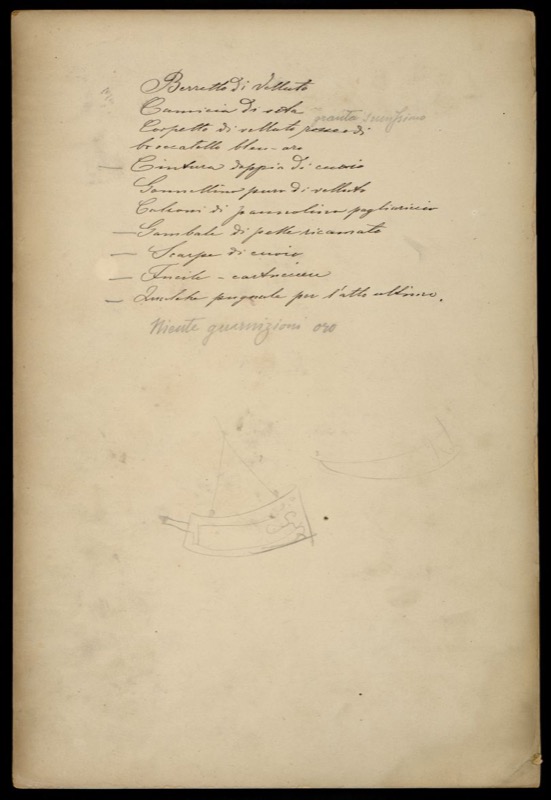 Berretto di velluto
Camicia di seta
granta scurissimo
Corpetto di velluto rosso di
broccatello bleu-oro
— Cintura doppia di cuoio
Gonnellino puro di velluto
Calzoni di pannolino pagliariccio
— Gambali di pelle ricamato
— Scarpe di cuoio
— Fucile - cartucciere
— Qualche pugnale per l'atto ultimo.
Niente guarnizioni oro